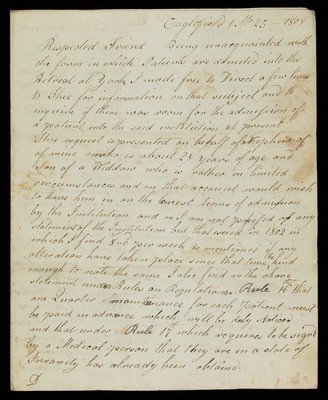 Eaglesfield 1 Mo 25 - 1808
Respected Friend Being unacquainted with
the form in which Patients are admited into the
Retreat at York I made free to Direct a few lines
to Thee for information on that subject and to
inquire if there was room for the admission of
a patient into the said institution at present
This request is presented on behalf of a Nephew of
of mine who is about 23 years of age and
Son of a Widdow who is rather in limited
circumstances and on that account would wish
to have him in on the lowest terms of admission
by the Institution and as I am not possesed of any
statement of the Institution but that used in 1802 in
which I find 8s per week is mentioned if any
alteration have taken place since that time be kind
enough to note the same I also find in the above
statement under Rules or Regulations Rule that
one Quarter maintinance for each patient must
be paid in advance which will be duly Noticed
and that under Rule which requires to be signd
by a Medical person that they are in a state of
Insanity has already been obtaind